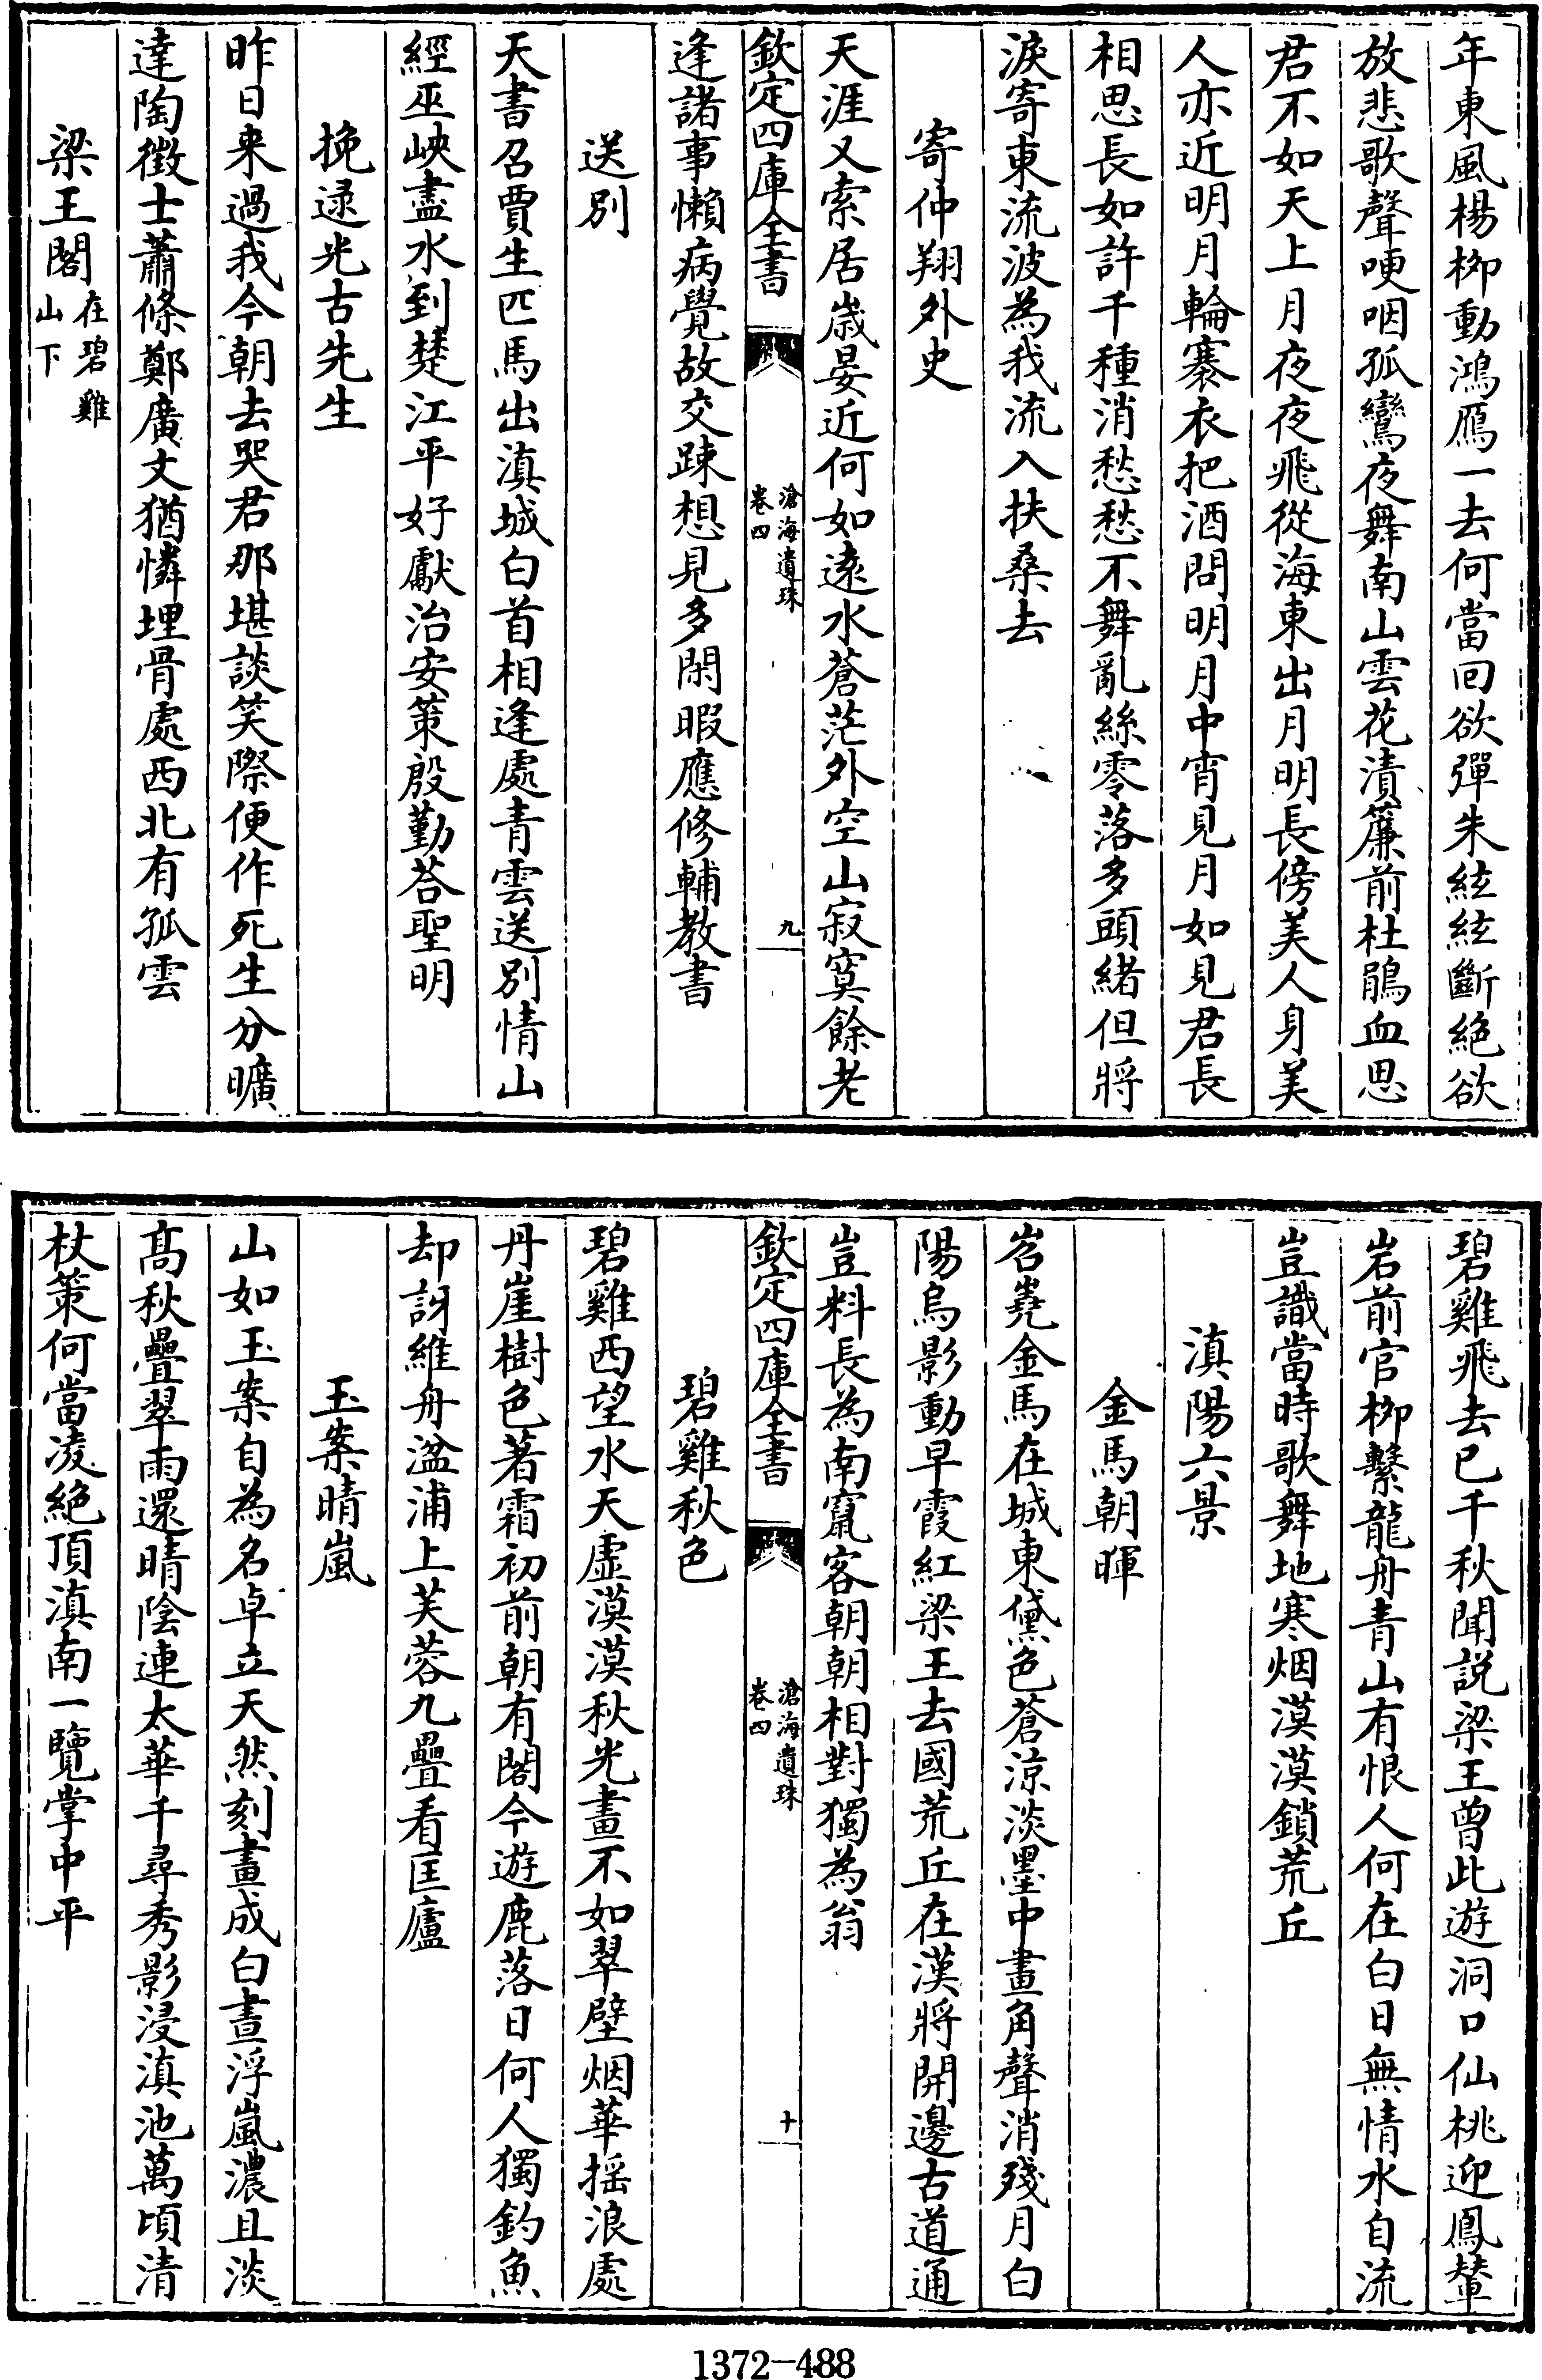 年東風楊栁動鴻鴈一去何當回欲彈朱絃絃斷絶欲
放悲歌聲哽咽孤鸞夜舞南山雲花漬簾前杜鵑血思
君不如天上月夜夜飛從海東出月明長傍美人身美
人亦近明月輪褰衣把酒問明月中宵見月如見君長
相思長如許千種消愁愁不舞亂絲零落多頭緒但將
淚寄東流波為我流入扶桑去
寄仲翔外史
天涯又索居歲晏近何如遠水蒼茫外空山寂寞餘老
欽定四庫全書
滄海遺珠
卷四
九
逢諸事懶病覺故交踈想見多閑暇應修輔教書
送别
天書召賈生匹馬出滇城白首相逢處青雲送别情山
經巫峽盡水到楚江平好獻治安策殷勤荅聖明
挽逯光古先生
昨日来過我今朝去哭君那堪談笑際便作死生分曠
達陶徵士蕭條鄭廣文猶憐埋骨處西北有孤雲
梁王閣在碧雞
山下
碧雞飛去已千秋聞説梁王曾此遊洞口仙桃迎鳳輦
岩前官栁繫龍舟青山有恨人何在白日無情水自流
豈識當時歌舞地寒烟漠漠鎖荒丘
滇陽六景
金馬朝暉
岧嶤金馬在城東黛色蒼凉淡墨中畫角聲消殘月白
陽烏影動早霞紅梁王去國荒丘在漢將開邊古道通
豈料長為南竄客朝朝相對獨為翁
欽定四庫全書
滄海遺珠
卷四
十
碧雞秋色
碧雞西望水天虛漠漠秋光畫不如翠壁烟華揺浪處
丹崖樹色著霜初前朝有閣今遊鹿落日何人獨釣魚
却訝維舟湓浦上芙蓉九疊看匡廬
玉案晴嵐
山如玉案自為名卓立天然刻畫成白晝浮嵐濃且淡
髙秋疊翠雨還晴陰連太華千尋秀影浸滇池萬頃清
杖策何當凌絶頂滇南一覽掌中平
1372-488